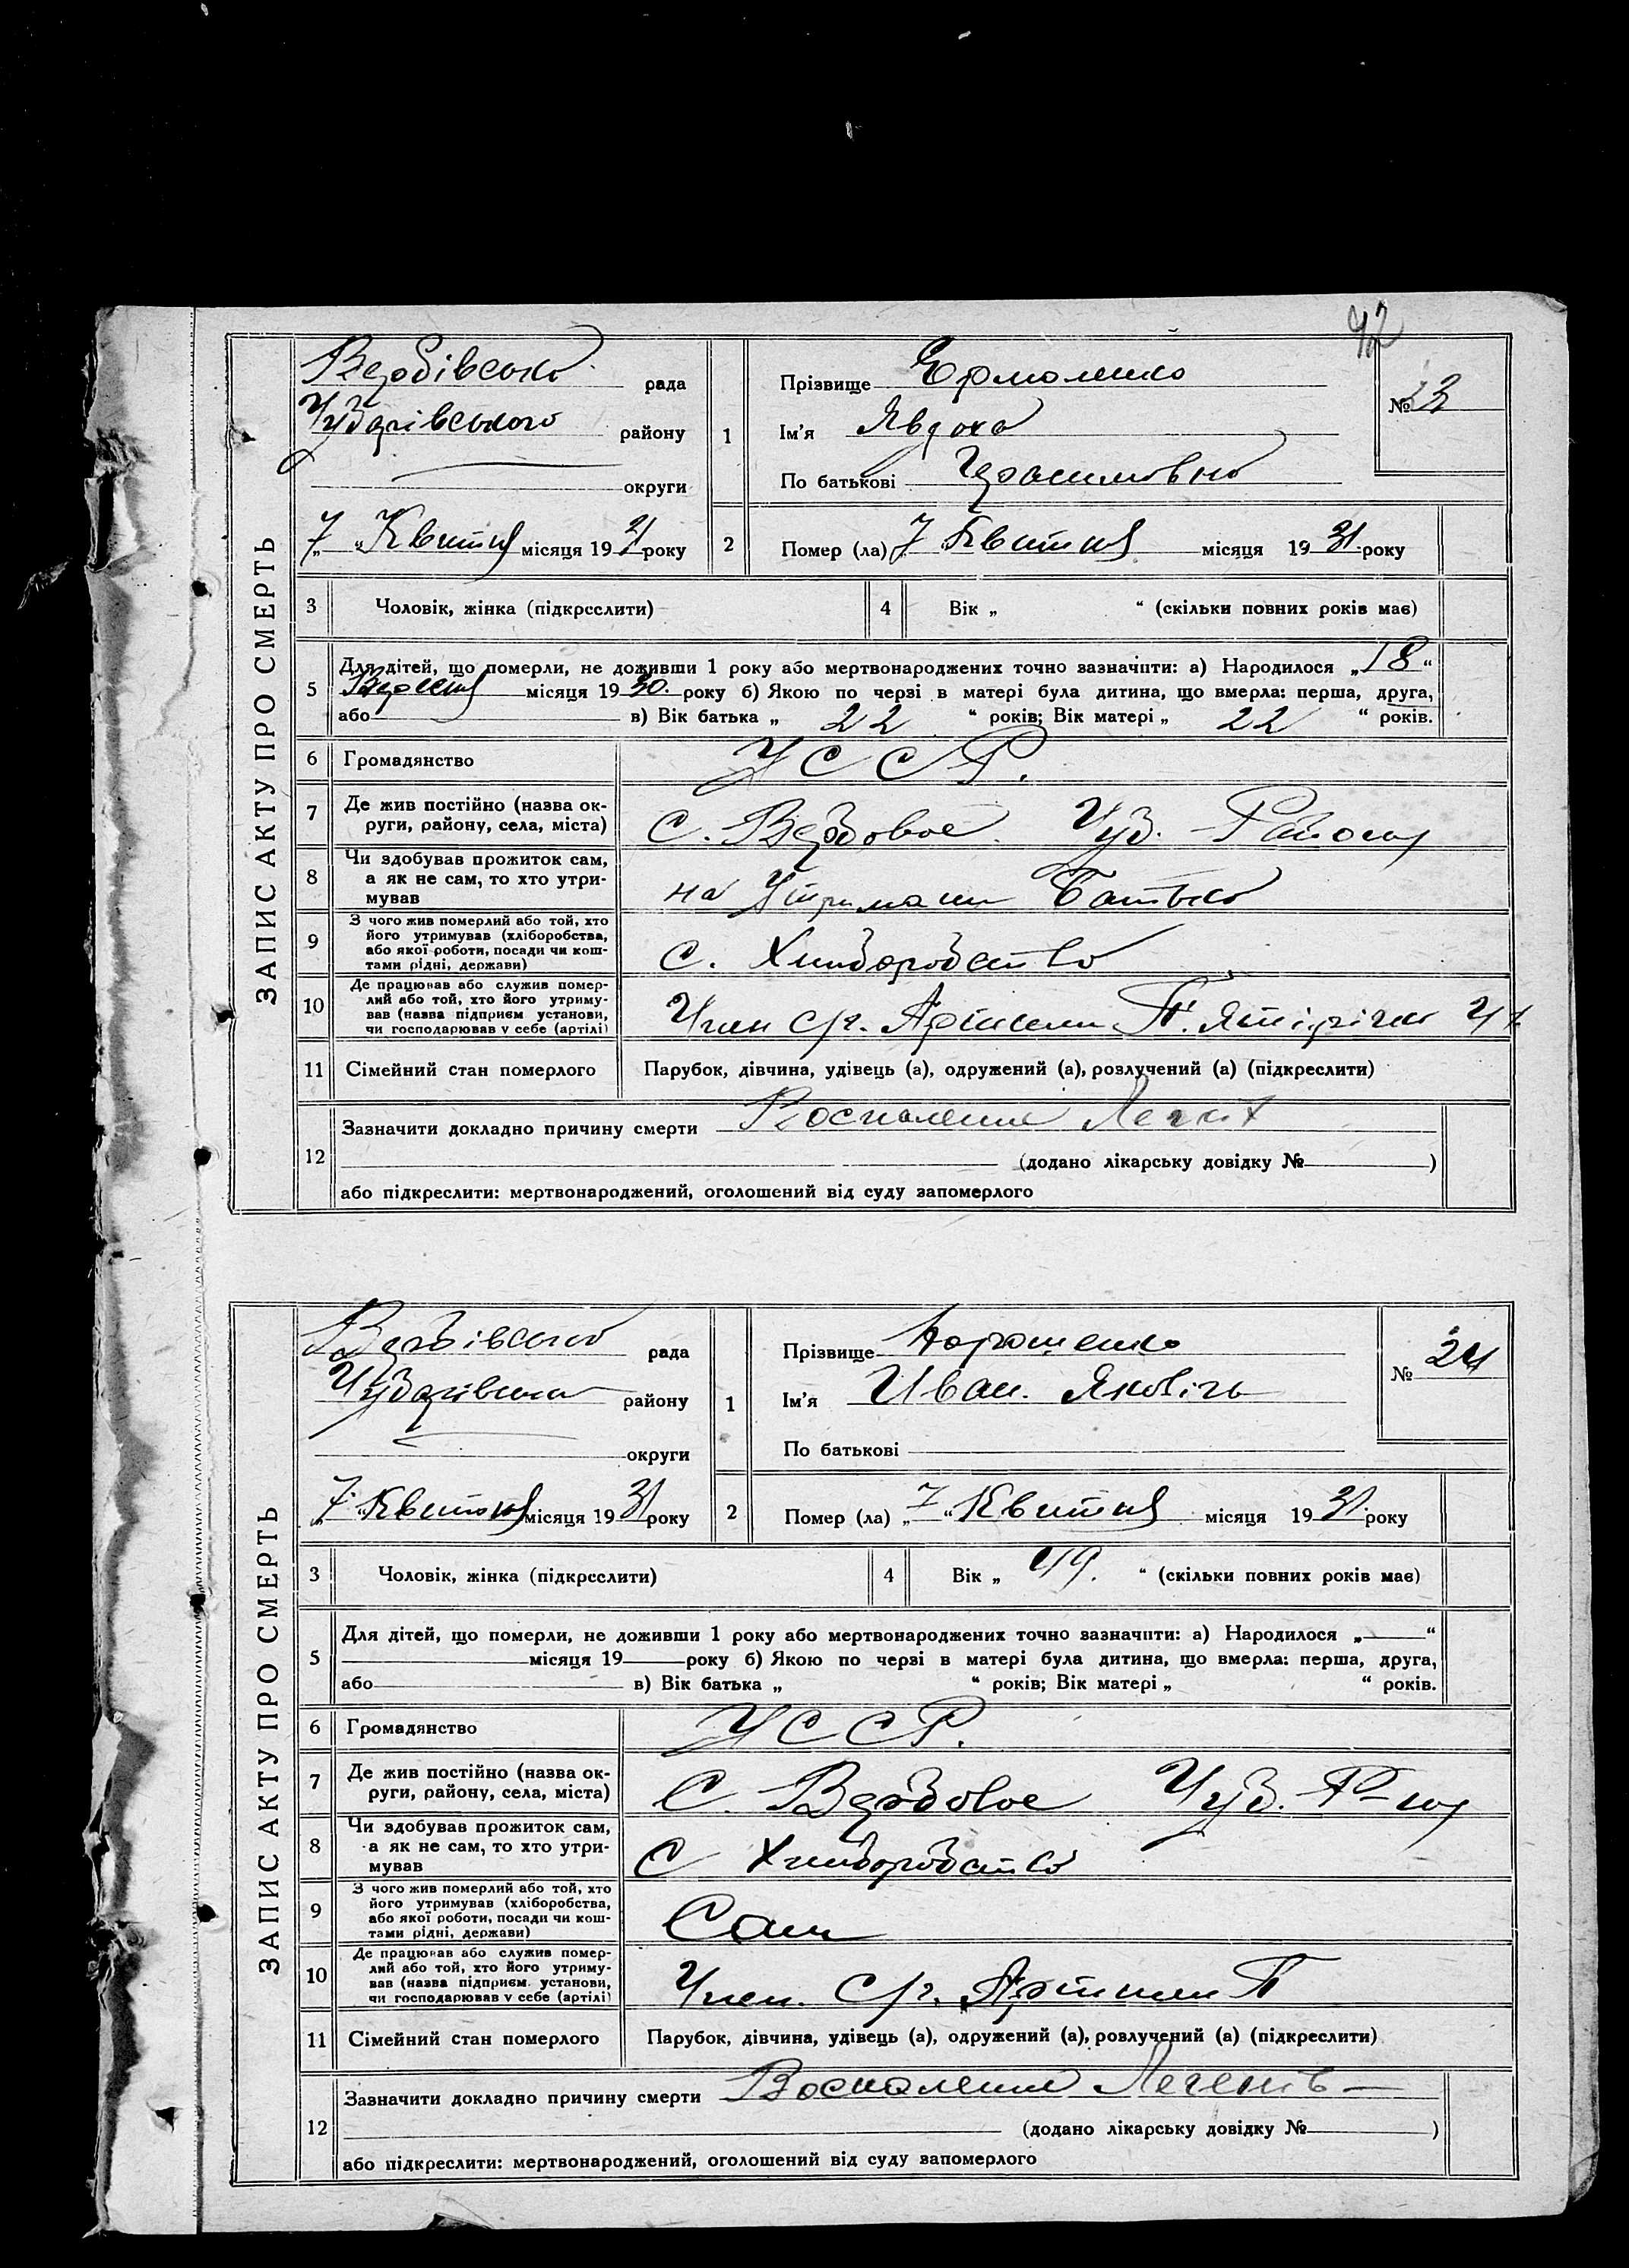 42
ЗАПИС АКТУ ПРО СМЕРТЬ
Вербівська рада
Чубарівського району
округи
„7“ Квитня місяця 1931 року
1 Прізвище Єрмоленко
Ім'я Явдоха
По батькові
№ 23
2 Помер (ла) „7“ Квитня місяця 1931 року
3 Чоловік, жінка (підкреслити)
4 Вік „ “ (скільки повних років має)
5 Для дітей, що померли, не доживши 1 року або мертвонароджених точно зазначити: а) Народилося „18“
Вересня місяця 1930. року б) Якою по черзі в матері була дитина, що вмерла: перша, друга,
або в) Вік батька „ 22 “ років; Вік матері „ 22 “ років.
6 Громадянство УССР.
7 Де жив постійно (назва ок-
руги, району, села, міста) С. Вербовое. Чуб. Району
8 Чи здобував прожиток сам,
а як не сам, то хто утри-
мував на Утримани Батька
9 З чого жив померлий або той, хто
його утримував (хліборобства,
або якої роботи, посади чи кош-
тами рідні, держави) С. Хлиборобство
10 Де працював або служив помер-
лий або той, хто його утриму-
вав (назва підприєм установи,
чи господарював у себе (артілі) Член с/г. Артили П'ятірічка
11 Сімейний стан померлого Парубок, дівчина, удівець (а), одружений (а), розлучений (а) (підкреслити)
12 Зазначити докладно причину смерти Воспаление Легких
(додано лікарську довідку № )
або підкреслити: мертвонароджений, оголошений від суду запомерлого
ЗАПИС АКТУ ПРО СМЕРТЬ
Вербівської рада
Чубарівська району
округи
„7“ Квитня місяця 1931 року
1 Прізвище Дорошенко
Ім'я Иван. Яковічь
По батькові
№ 24
2 Помер (ла) „7“ Квитня місяця 1931. року
3 Чоловік, жінка (підкреслити)
4 Вік „ 49. “ (скільки повних років має)
5 Для дітей, що померли, не доживши 1 року або мертвонароджених точно зазначити: а) Народилося „ “
місяця 19 року б) Якою по черзі в матері була дитина, що вмерла: перша, друга,
або в) Вік батька „ “ років; Вік матері „ “ років.
6 Громадянство УССР.
7 Де жив постійно (назва ок-
руги, району, села, міста) С. Вербовое Чуб. Р-ну
8 Чи здобував прожиток сам,
а як не сам, то хто утри-
мував С Хлиборобства
9 З чого жив померлий або той, хто
його утримував (хліборобства,
або якої роботи, посади чи кош-
тами рідні, держави) Сам
10 Де працював або служив помер-
лий або той, хто його утриму-
вав (назва підприєм. установи,
чи господарював у себе (артілі) Член. С/г. Артили П
11 Сімейний стан померлого Парубок, дівчина, удівець (а), одружений (а), розлучений (а) (підкреслити)
12 Зазначити докладно причину смерти Воспаление Легенів
(додано лікарську довідку № )
або підкреслити: мертвонароджений, оголошений від суду запомерлого